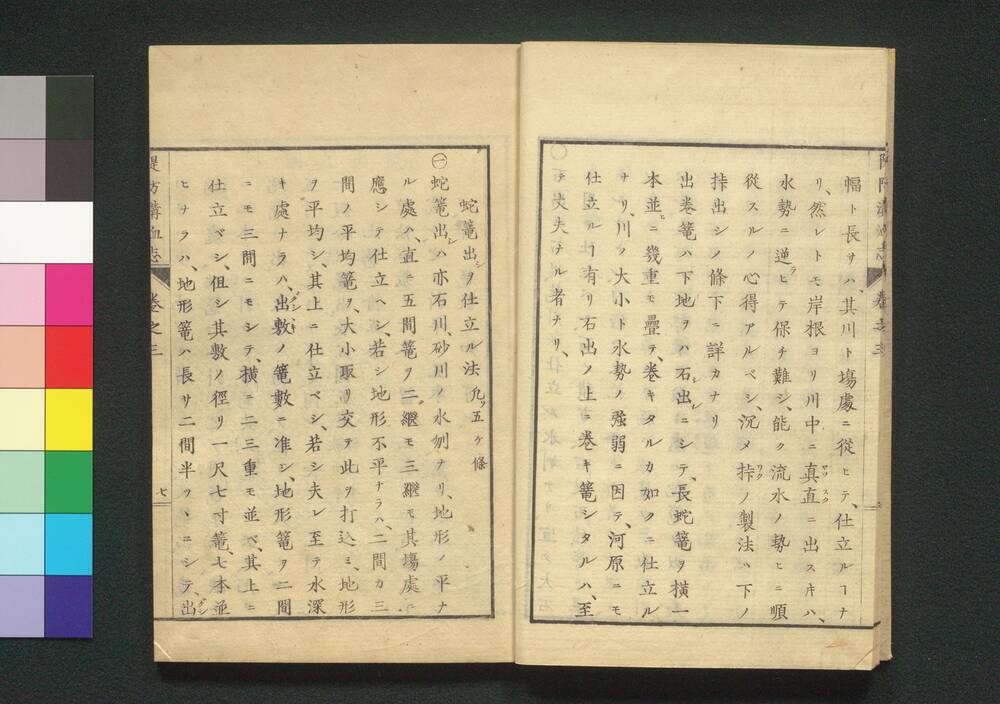 幅ト長サハ、其川ト塲處ニ從ヒテ、仕立ルヿナ
リ、然レトモ岸根ヨリ川中ニ真直ニ出スキハ、
水勢ニ逆ヒテ保チ難シ、能ク流水ノ勢ヒニ順
從スルノ心得アルベシ、沉メ持ノ製法ハ下ノ
持出シノ條下ニ詳カナリ
出巻篭ハ下地ヲハ石出ニシテ、長蛇篭ヲ横一
本並ニ幾重モ疊テ、巻キタルカ如クニ仕立ル
ナリ、川ノ大小ト水勢ノ強弱ニ因テ、河原ニモ
仕立ルヿ有リ石出ノ上ニ巻キ篭シタルハ、至
テ丈夫ナル者ナリ、
堤防溝洫志
巻之三
七
蛇篭出シヲ仕立ル法 九ソ五ケ條
㊀蛇篭出シハ亦石川、砂川ノ水刎ナリ、地形ノ平ナ
ル處ハ、直ニ五間篭ヲ二継モ三継モ其塲處ニ
應シテ仕立ヘシ、若シ地形不平ナラハ、二間カ三
間ノ平均篭ヲ、大小取リ交テ此ヲ打込ミ、地形
ヲ平均シ、其上ニ仕立ベシ、若シ夫レ至テ水深
キ處ナラハ、出敷ノ篭數ニ准シ、地形篭ヲ二間
ニモ三間ニモシテ、横ニ二三重モ並ベ、其上ニ
仕立ベシ、但シ其敷ノ徑リ一尺七寸篭、七本並
ヒナラハ、地形篭ハ長サ二間半ツヽニシテ、出